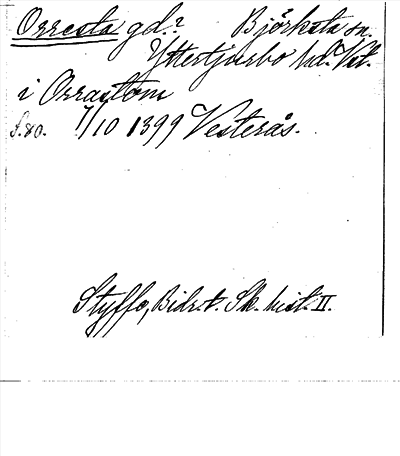 Orresta gd.? Björksta sn.
Yttertjurbo hd. Vstl.
i Orrastom
s. 80. 7/10 1399 Vesterås.
Styffe, Bidr. t. Sk. hist. II.